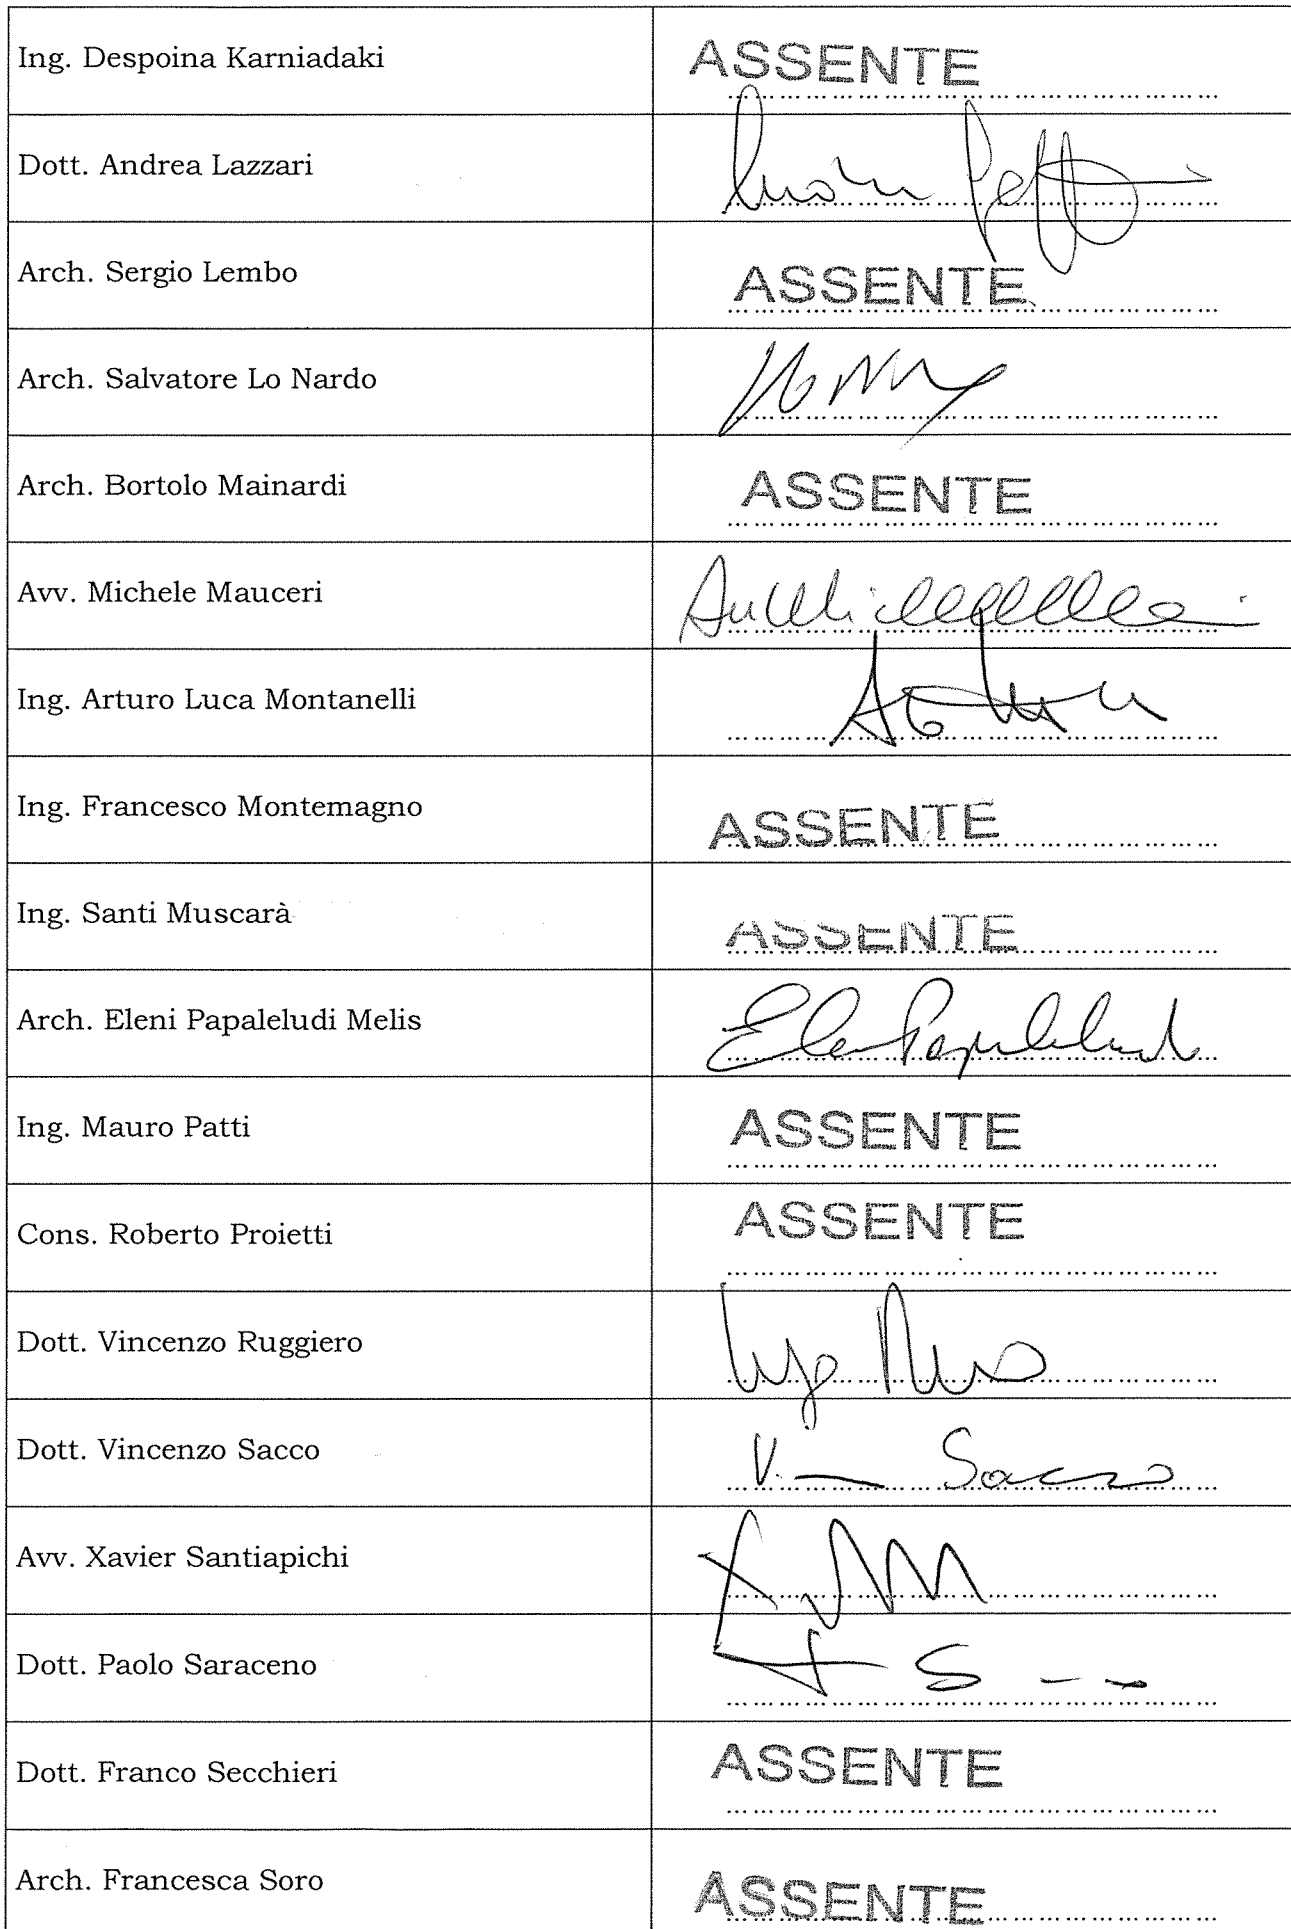 Ing. Despoina Karniadaki ASSENTE
Dott. Andrea Lazzari
Arch. Sergio Lembo ASSENTE
Arch. Salvatore Lo Nardo
Arch. Bortolo Mainardi ASSENTE
Avv. Michele Mauceri
Ing. Arturo Luca Montanelli
Ing. Francesco Montemagno ASSENTE
Ing. Santi Muscarà ASSENTE
Arch. Eleni Papaleludi Melis
Ing. Mauro Patti ASSENTE
Cons. Roberto Proietti ASSENTE
Dott. Vincenzo Ruggiero
Dott. Vincenzo Sacco V. Sacco
Avv. Xavier Santiapichi
Dott. Paolo Saraceno
Dott. Franco Secchieri ASSENTE
Arch. Francesca Soro ASSENTE